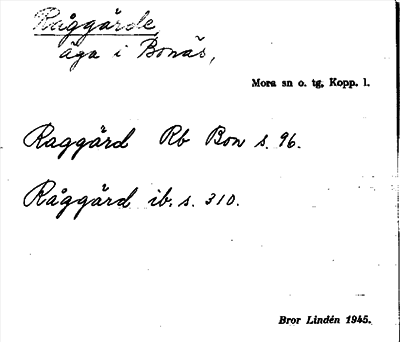 Råggärde,
äga i Bonäs,
Mora sn o. tg, Kopp. l.
Raggärd Rb Bon s. 96.
Råggärd ib. s. 310.
Bror Lindén 1945.